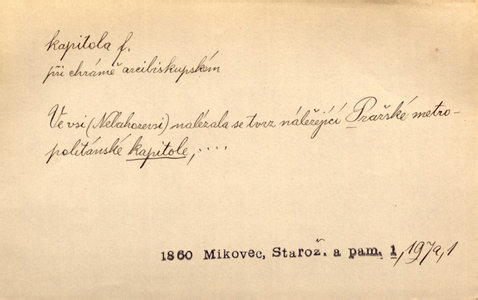 kapitola f.
při chrámě arcibiskupském
Ve vsi (Nelahozevsi) nalézala se tvrz náležející Pražské metro-
politánské kapitole, ....
1860 Mikovec, Starož. a pam. 1, 197a, 1